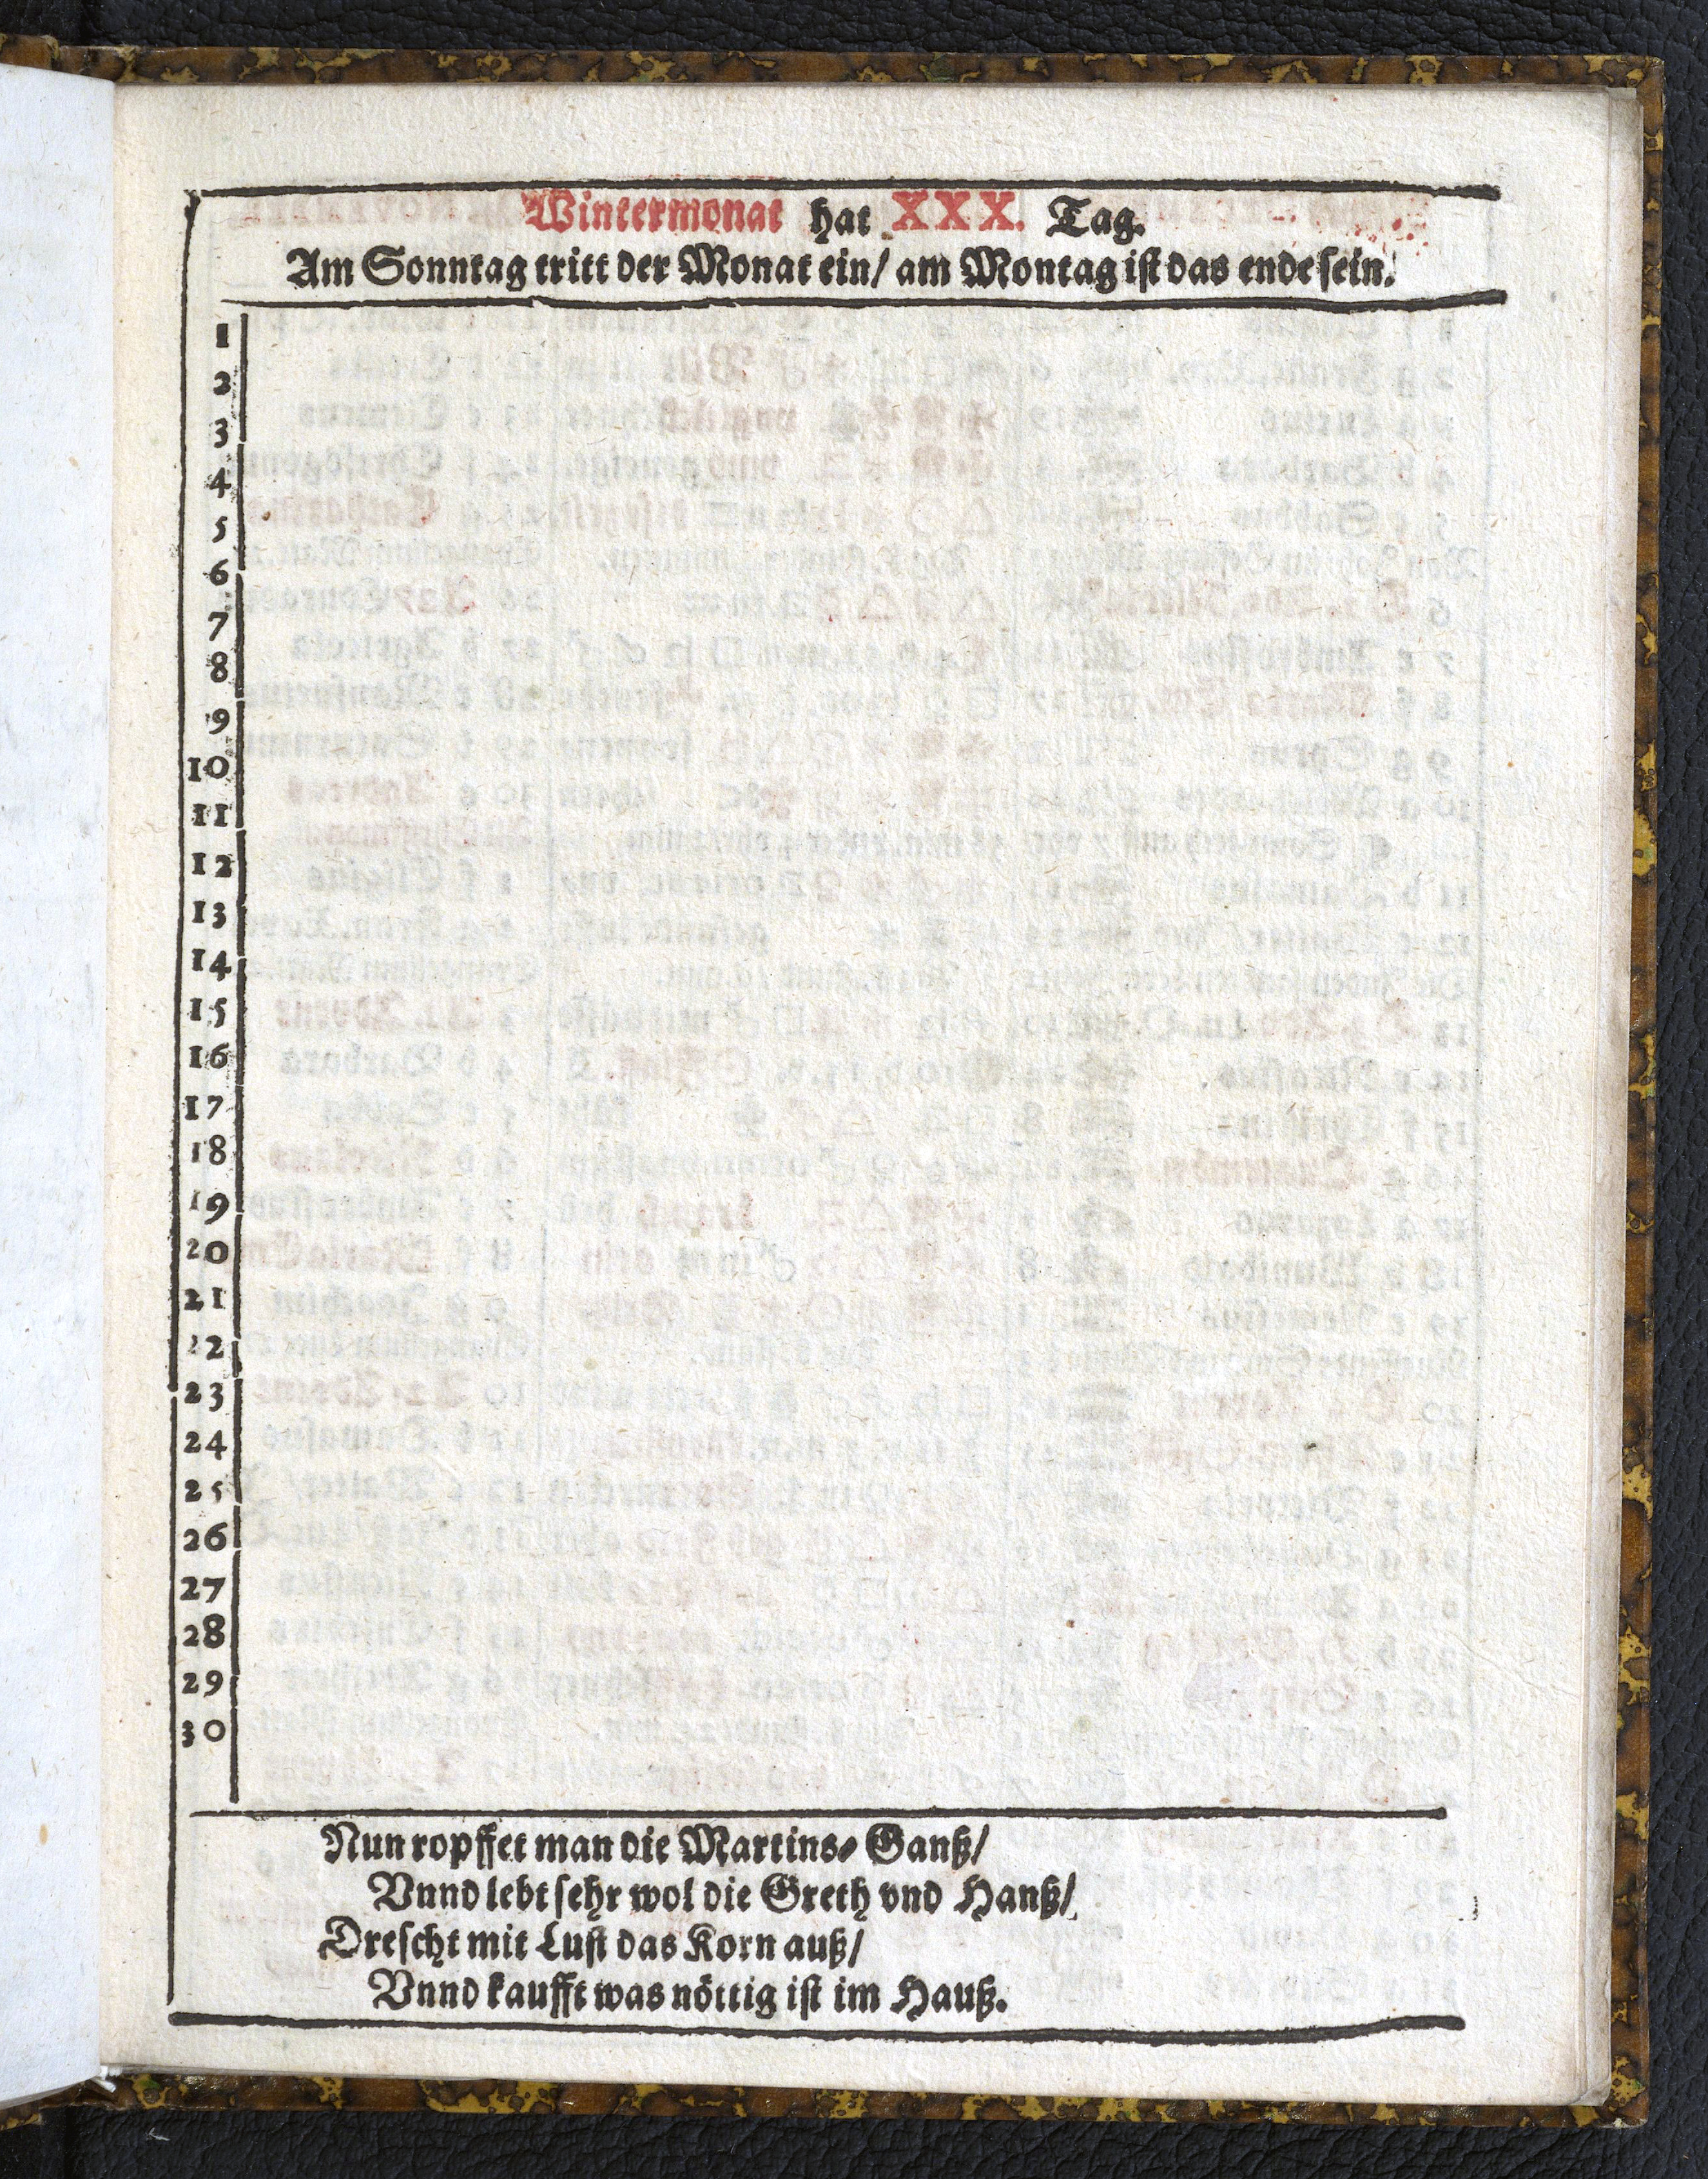 Wintermonat hat XXX. Tag.
Am Sonntag tritt der Monat ein/ am Montag ist das ende sein.
1
2
3
4
5
6
7
8
9
10
11
12
13
14
15
16
17
18
19
20
21
22
23
24
25
26
27
28
29
30
Nun ropffet man die Martins- Ganß/
Vnnd lebt sehr wol die Greth vnd Hanß/
Drescht mit Lust das Korn auß/
Vnnd kaufft was nöttig ist im Hauß.